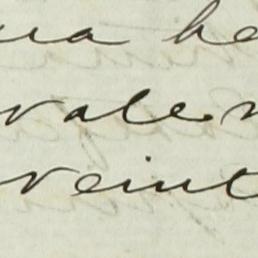 ua he
vale
veint